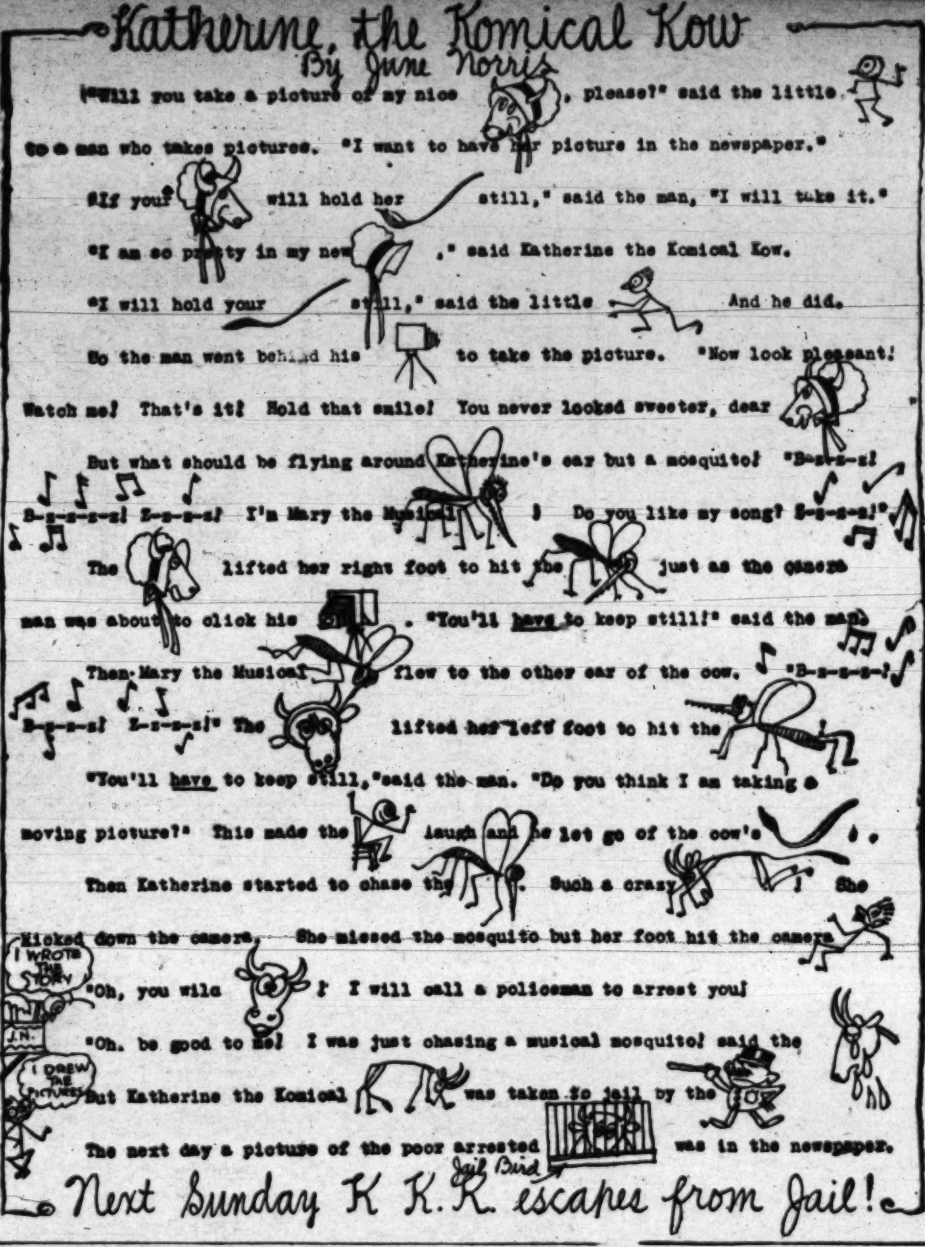 Katherine, the Komical Kow
By June Norris
"Will you take a picture of my nice , please?" said the little
to a man who takes pictures. "I want to have her picture in the newspaper."
"If your will hold her still," said the man, "I will take it."
"I am so pretty in my new ," said Katherine the Komical Kow.
"I will hold your still," said the little And he did.
So the man went behind his to take the picture. "Now look pleasant!
Watch me! That's it! Hold that smile! You never looked sweeter, dear "
But what should be flying around Katherine's ear but a mosquito! "B-z-z-z!
B-z-z-z-z! Z-z-z-z! I'm Mary the Musical ! Do you like my song? Z-z-z-z!"
The lifted her right foot to hit the just as the camera
man was about to click his . "You'll have to keep still!" said the man.
Then Mary the Musical flew to the other ear of the cow. "B-z-z-z-!
B-z-z-z! Z-z-z-z!" The lifted her left foot to hit the
"You'll have to keep still," said the man. "Do you think I am taking a
moving picture?" This made the laugh and he let go of the cow's .
Then Katherine started to chase the . Such a crazy ! She
Kicked down the camera. She missed the mosquito but her foot hit the camera
I WROTE
THE
STORY
"Oh, you wild ! I will call a policeman to arrest you!
J.N.
"Oh. be good to me! I was just chasing a musical mosquito! said the
I DREW
THE
PICTURES
But Katherine the Komical was taken to jail by the
The next day a picture of the poor arrested was in the newspaper.
Jail Bird
Next Sunday K K.K. escapes from Jail!